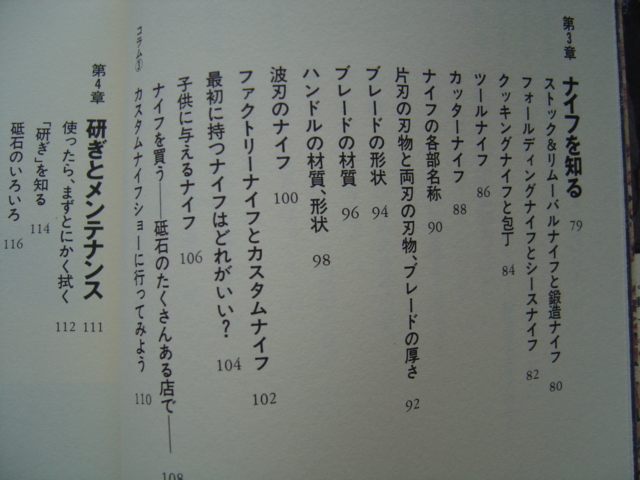 第3章 ナイフを知る 79
ストック&リムーバルナイフと鍛造ナイフ 80
フォールディングナイフとシースナイフ 82
クッキングナイフと包丁 84
ツールナイフ 86
カッターナイフ 88
ナイフの各部名称 90
片刃の刃物と両刃の刃物、ブレードの厚さ 92
ブレードの形状 94
ブレードの材質 96
ハンドルの材質、形状 98
波刃のナイフ 100
ファクトリーナイフとカスタムナイフ 102
最初に持つナイフはどれがいい? 104
子供に与えるナイフ 106
ナイフを買う——砥石のたくさんある店で—— 108
コラム③ カスタムナイフショーに行ってみよう 110
第4章 研ぎとメンテナンス 111
使ったら、まずとにかく拭く 112
「研ぎ」を知る 114
砥石のいろいろ 116